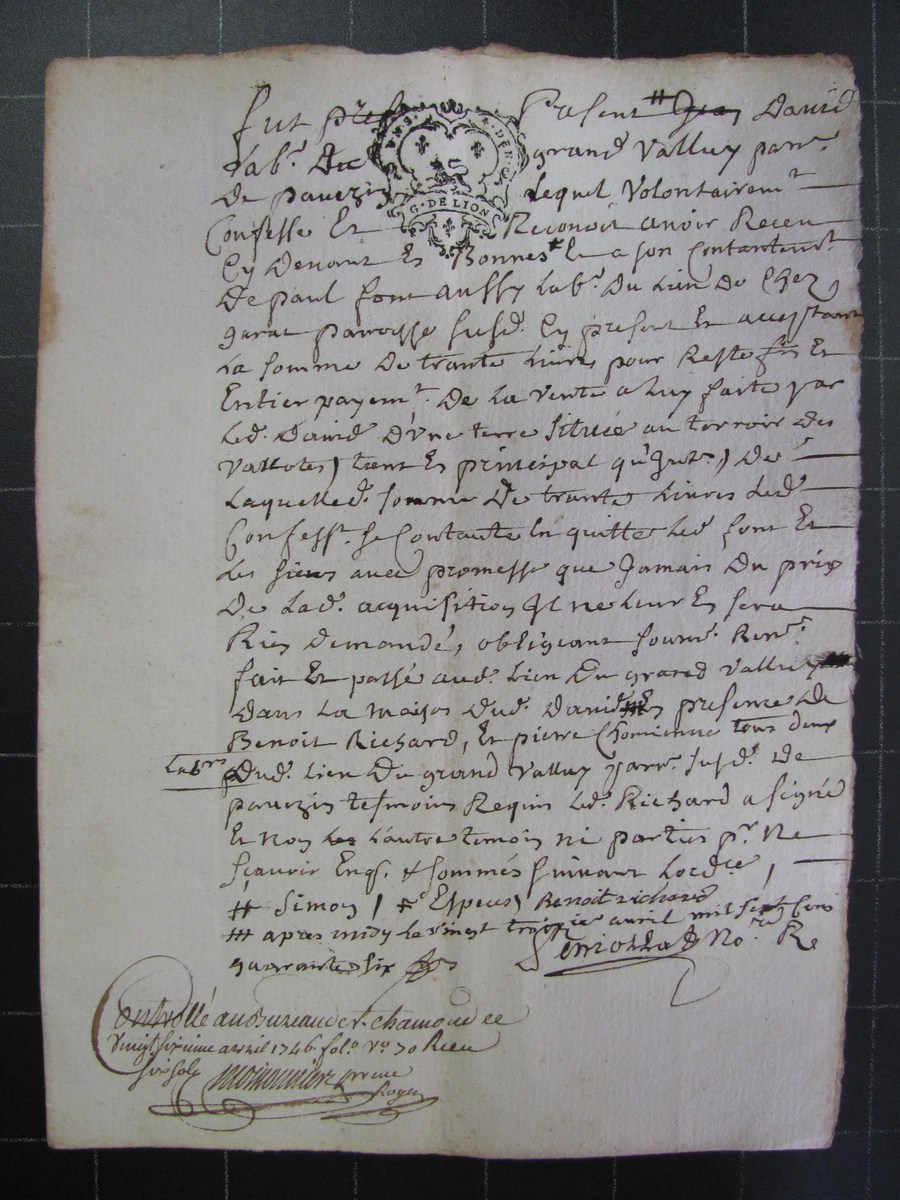 fut pres Present # Jean David
Lab.r Du grand Valluy parr.e
De pavezin Lequel Volontairem.t
Confesse Et Reconoit avoir Receu
Cy Devant En Bonnes # Et a son Contantem.t
De paul font aussy Lab.r Du Lieu De Chez
garat parroisse susd. Cy present Et acceptant
La somme De trante Livres pour Reste fin Et
Entier payem.t De La Vente a Luy faite par
Led. David D'une terre Située au terroir des
Vallotes, tant En principal qu'Int. ) De
Laquelle d. somme De trante Livres Led.
Confess.t se Contante En quitte Led font Et
Les siens avec promesse que Jamais Du prix
De Lad. acquisition Il ne Leur En sera
Rien Demandé, obligeant soum. Ren.
fait Et passé aud. Lieu Du grand Valluy ##
Dans La maison Dud. David En presence De
Benoit Richard, Et pierre Chomienne tous deux
Labrs
Dud. Lieu Du grand Valluy parr. susd. De
pavezin tesmoins Requis Led. Richard a signé
Et non Les L'autre temoin ni parties p.r Ne
sçavoir Enq. & sommés suivant L'ord.ce
# Simon / #c Especes / Benoit richard
### apres midy Le vingt troizie avril mil sept Cens
quarante six
No.re R
G. DE LION
Controllé au Bureau de St. chamond ce
Vingt sixieme avril 1746. fol.o Vo 70 Receu
six sols